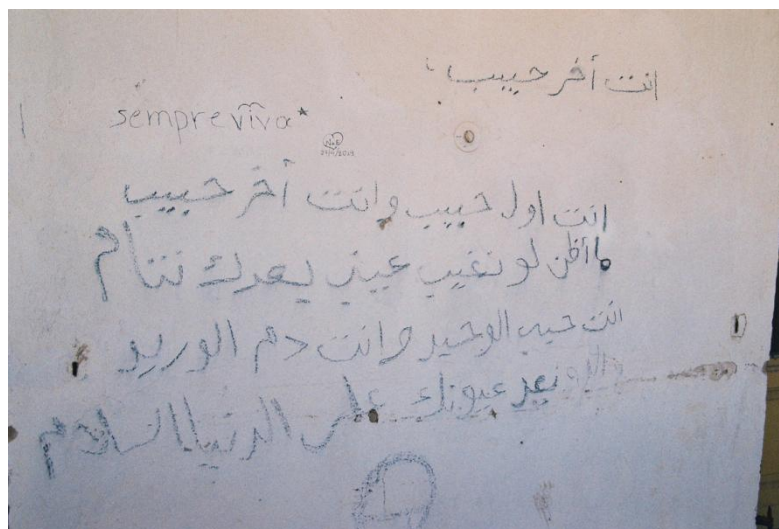 انت أخر حبيب
sempreviva*
انت اول حبيب وانت أخر حبيب
ما أظن لو تغيب عيني بعدك تنام
انت حبيب الوحيد وانت دم الوريد
بعد عيونك على الدنيا السلام